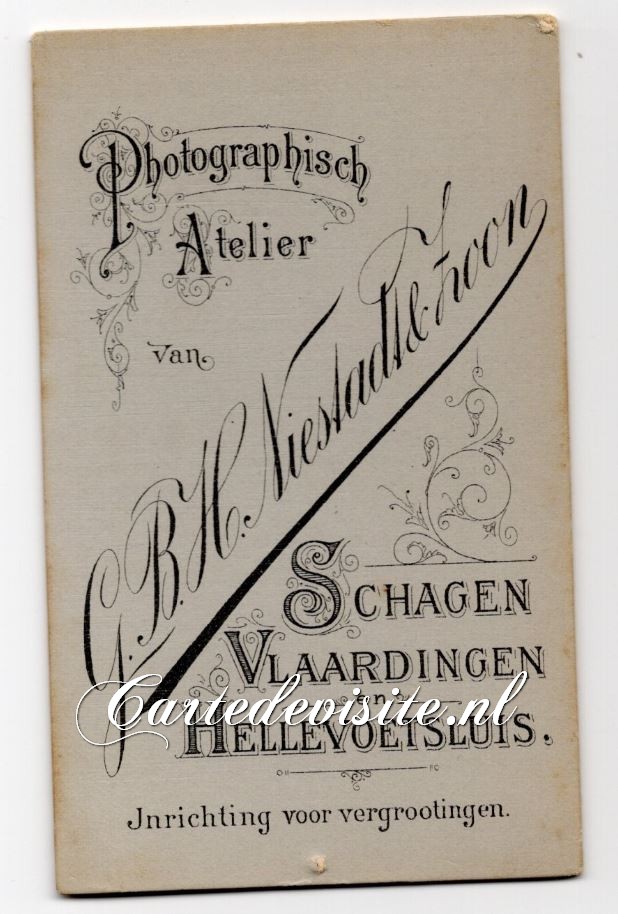 Photographisch
Atelier
van
G.B.H. Niestadt & Zoon
SCHAGEN
VLAARDINGEN
en
HELLEVOETSLUIS.
Cartedevisite.nl
Jnrichting voor vergrootingen.